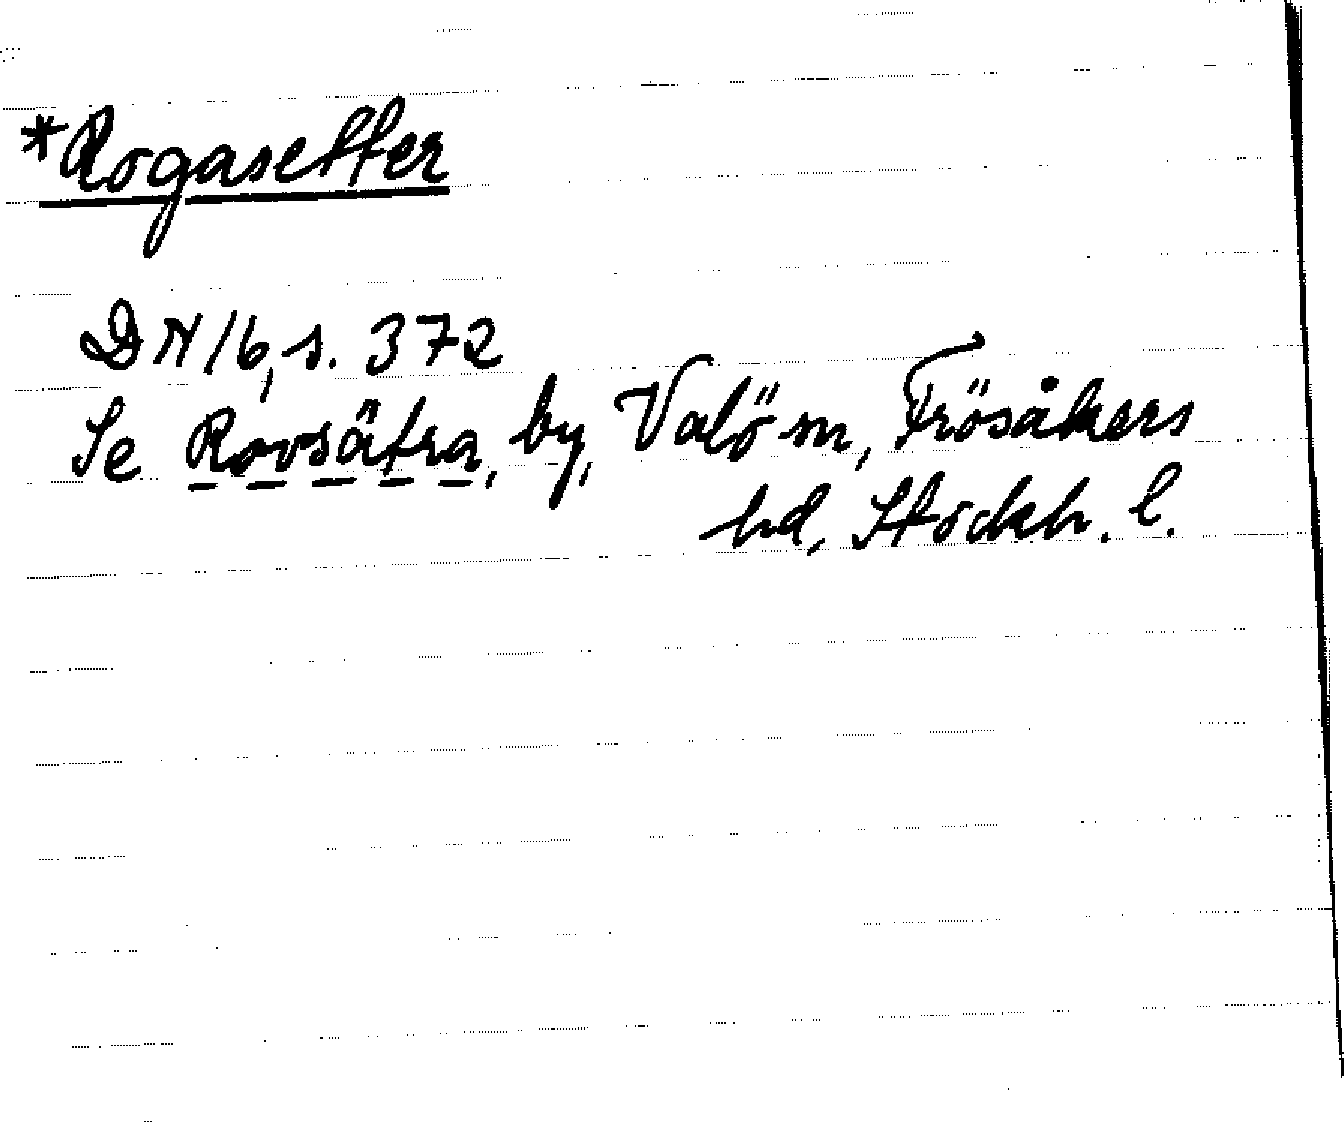 *Rogasetter
DN 16, s. 372
Se Rovsätra, by, Valö sn, Frösåkers
hd, Stockh. l.